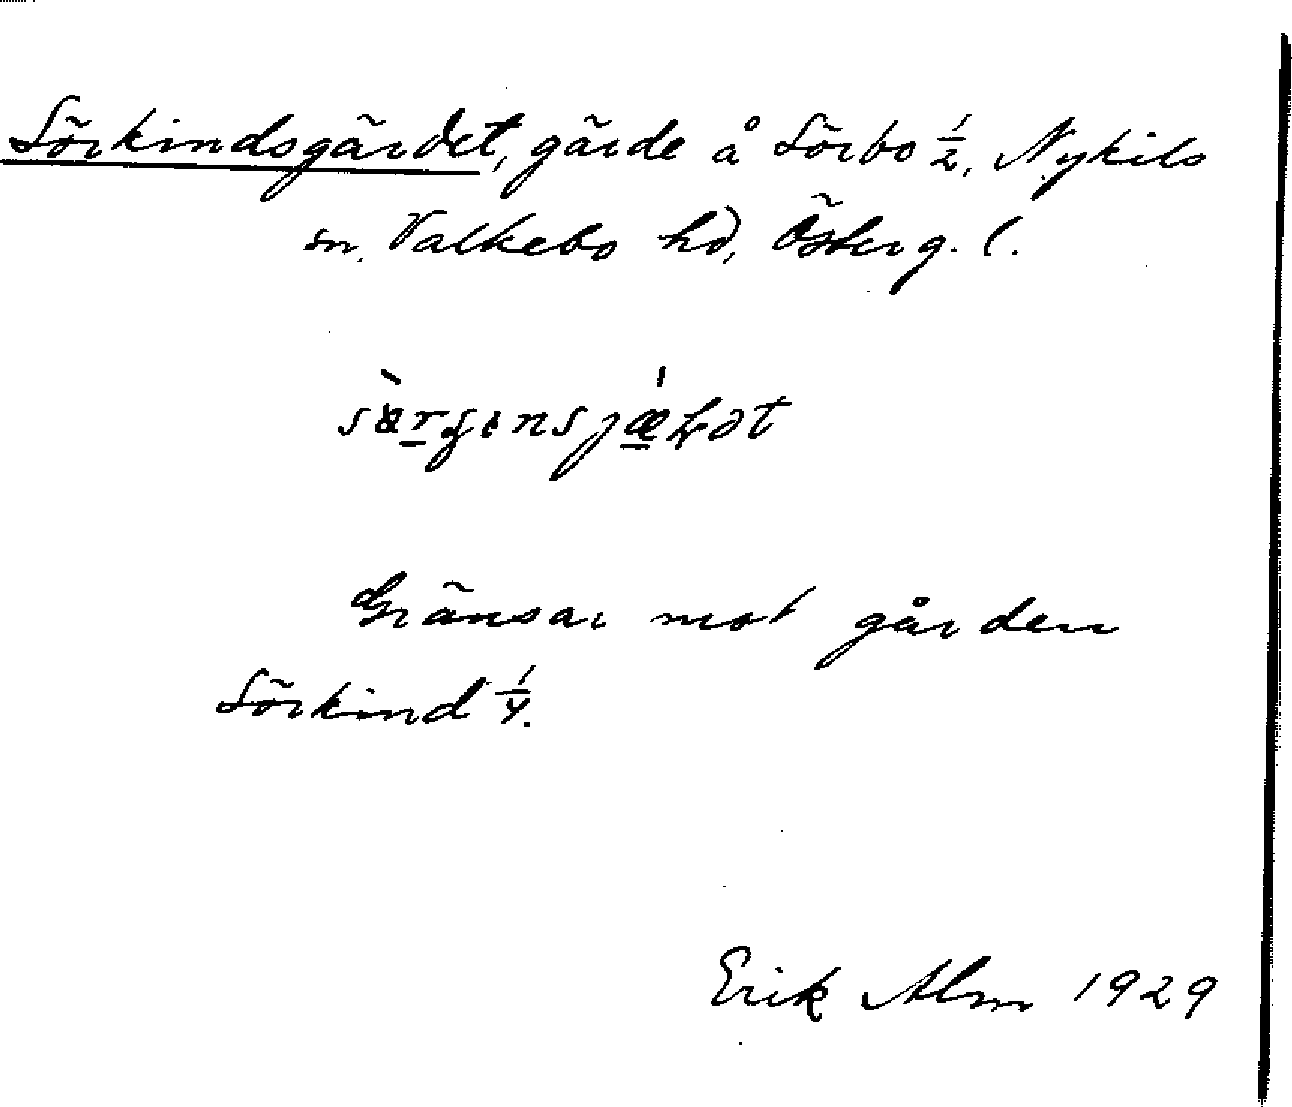 Sörkindsgärdet, gärde å Sörbo 1/2, Nykils
sn, Valkebo hd, Österg. l.
Gränsar mot gården
Sörkind 1/4.
Erik Alm 1929